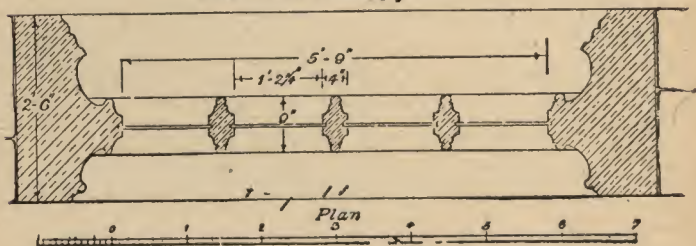 5'-9"
1'-2¼" 4"
2-6" 9"
Plan
0 1 2 3 4 5 6 7